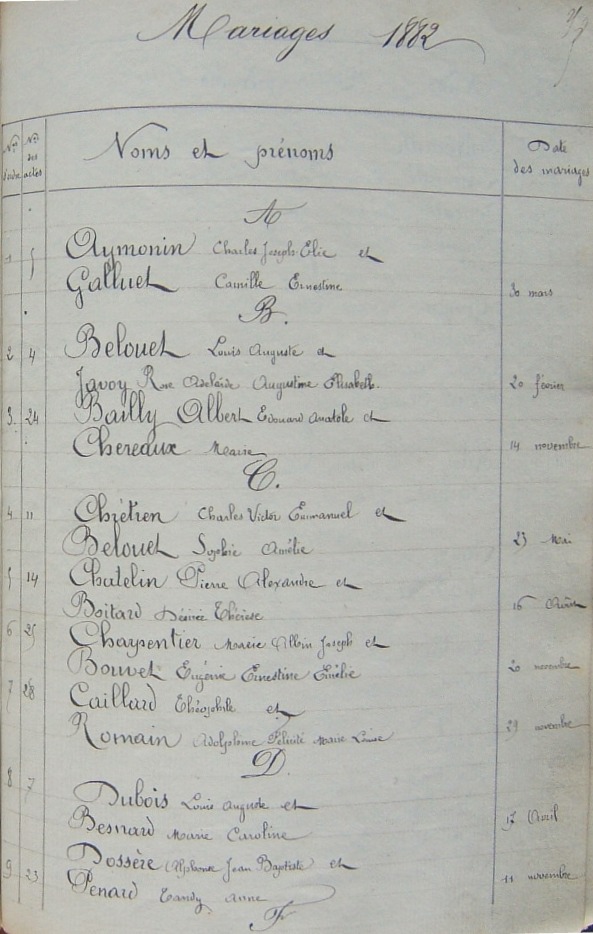 Mariages 1882
Nos d'ordre
Nos des actes
Noms et prénoms
Date des mariages
A
1 5 Aymonin Charles Joseph Elie et
Galluet Camille Ernestine 30 mars
B.
2 4 Belouet Louis Auguste et
Javoy Rose Adelaïde Augustine Elisabeth. 20 février
3. 24 Bailly Albert Edouard Anatole et
Chereaux Marie 14 novembre
C.
4 11 Chrétien Charles Victor Emmanuel et
Belouet Sophie Amélie 23 Mai
5 14 Chatelin Pierre Alexandre et
Boitard Désirée Thérèse 16 Août
6 25 Charpentier Marie Albin Joseph et
Bouvet Eugénie Ernestine Emélie 20 novembre
7 28 Caillard Théophile et
Romain Adolphine Félicité Marie Louise 29 novembre
D.
8 7 Dubois Louis Auguste et
Besnard Marie Caroline 17 Avril
9 23 Dossère Alphonse Jean Baptiste et
Penard Anne 11 novembre
F